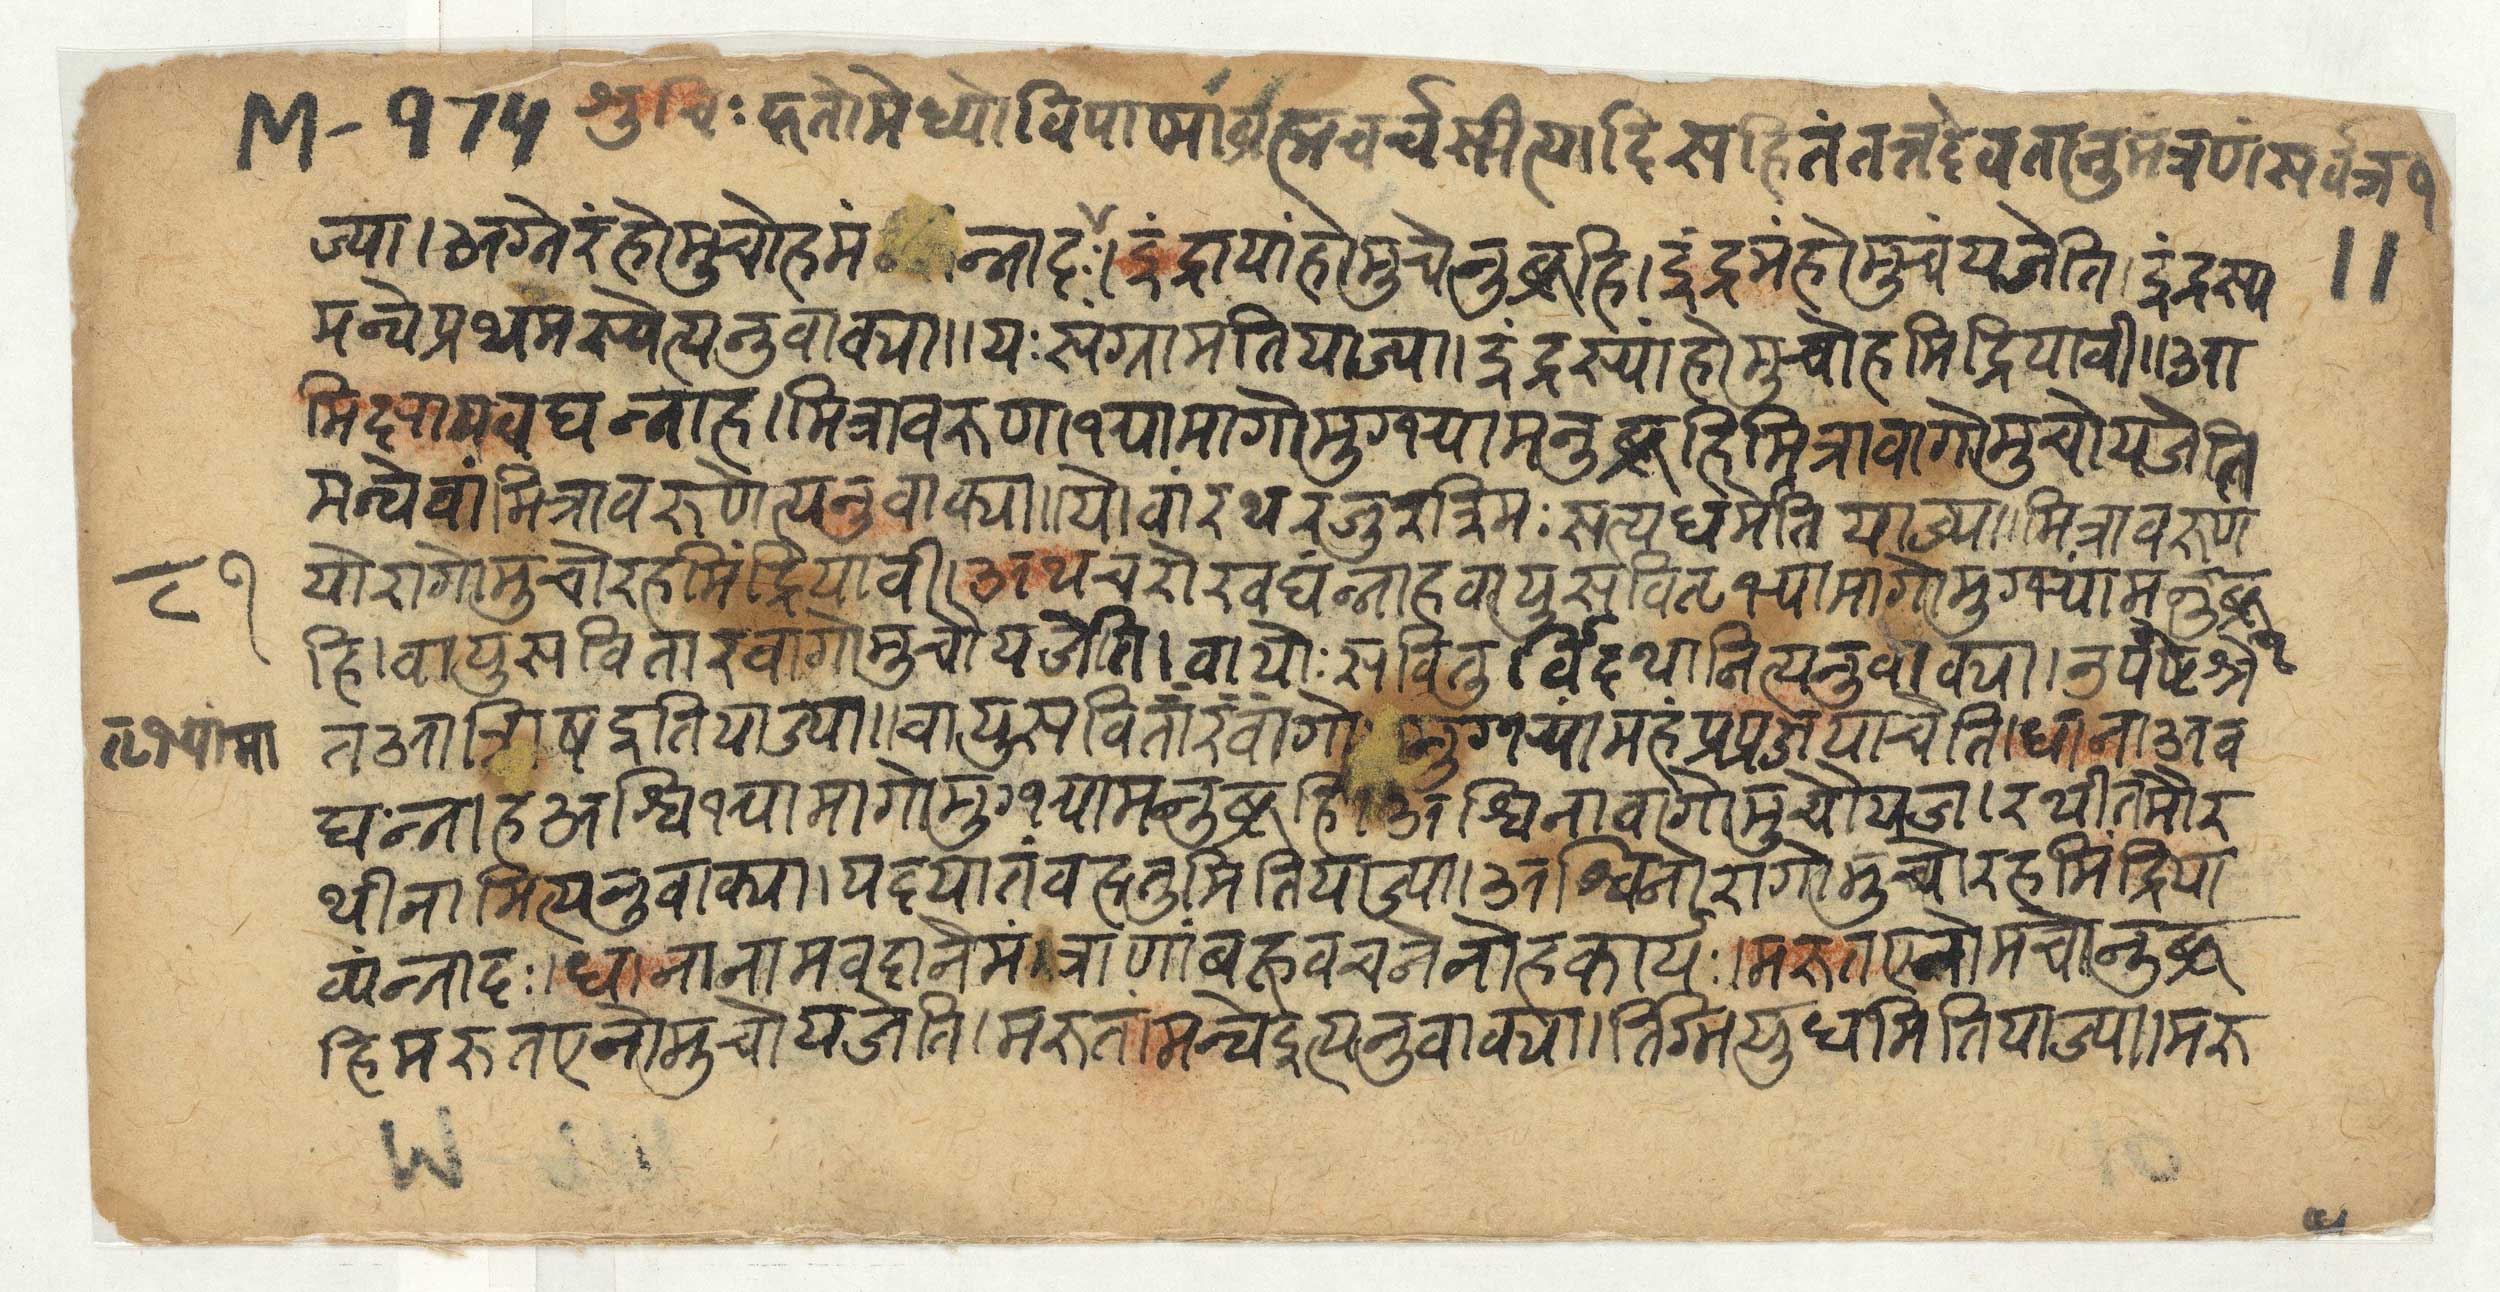 M-174 शुचिः पूतो मेध्यो विपाप्मा ब्रह्मवर्चस्वीत्यादि सहितं तत्तद्देवतानुमंत्रणं सर्वत्र १
11
ज्या।अग्नेरंहोमुचोहमं न्नादः।इंद्रायांहोमुचेनुब्रूहि।इंद्रमंहोमुचंयजेति।इंद्रस्य
मन्वेप्रथमस्येत्यनुवाक्या॥यःसंग्रामतियाज्या।इंद्रस्यांहोमुचोहमिंद्रियावी॥आ
मिक्षायावघन्नाह।मित्रावरुणाभ्यामागोमुग्भ्यामनुब्रूहिमित्रावागोमुचोयजेति
मन्वेवांमित्रावरुणेत्यनुवाक्या॥योवांरथरजुरश्मिमःसत्यधर्मेतियाज्या॥मित्रावरुण
योरागोमुचोरहमिंद्रियावी।अथचरोरवघंन्नाहवायुसवितृभ्यामागोमुग्भ्यांमनुब्रू
८१
हि।वायुसवितारवागोमुचोयजेति।वायोःसवितुर्विदथानित्यनुवाक्या।नुपश्रे
तआशिषइतियाज्या॥वायुसवितारंवागो मुग्भ्यांमहंप्रप्रजेयाचेति।धानाअव
तृभ्यामा
घन्नाहअश्विभ्यामागोमुग्भ्यामनुब्रूहि।अश्विनावागोमुचोयज।रथीतमौर
थीनामित्यनुवाक्या।यदयातंवहतुमितियाज्या।अश्विनोरागोमुचोरहमिंद्रिया
व्यंन्नादः।धानानामवदानेमंत्राणांबहुवचनेनोहकार्यः।मरुतएनोमचोनुब्रू
हिमरुतएनोमुचोयजेति।मरुतांमन्वेइत्यनुवाक्या।तिग्मयुधमितियाज्या।मरु